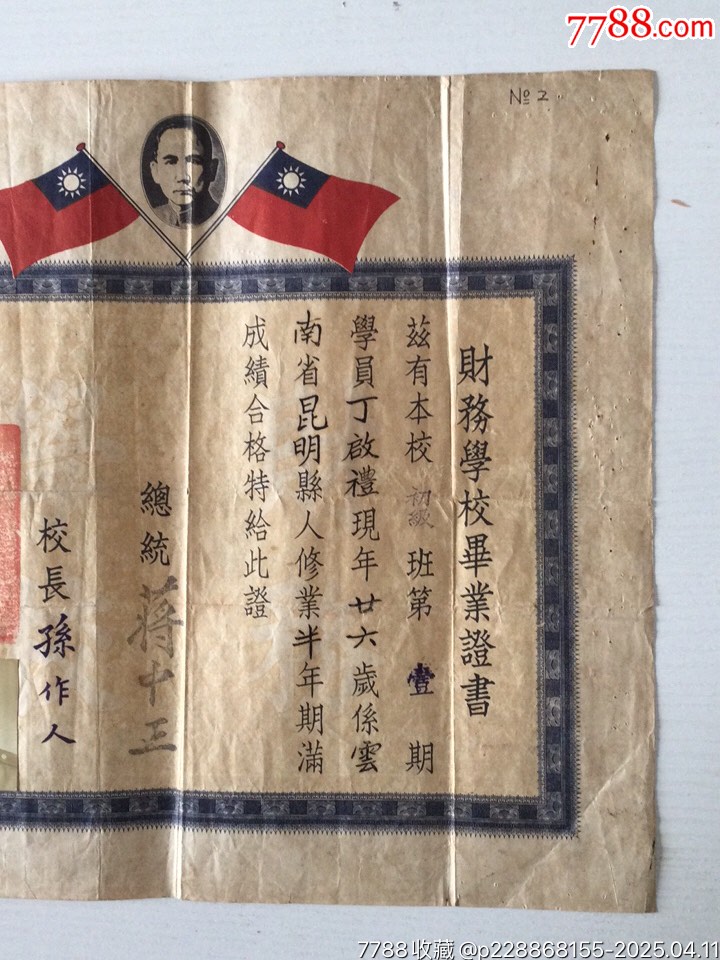 7788.com
№ 2
財務學校畢業證書
茲有本校初級班第壹期
學員丁啟禮現年廿六歲係雲
南省昆明縣人修業半年期滿
成績合格特給此證
總統蔣中正
校長孫作人
7788收藏 @p228868155-2025.04.11